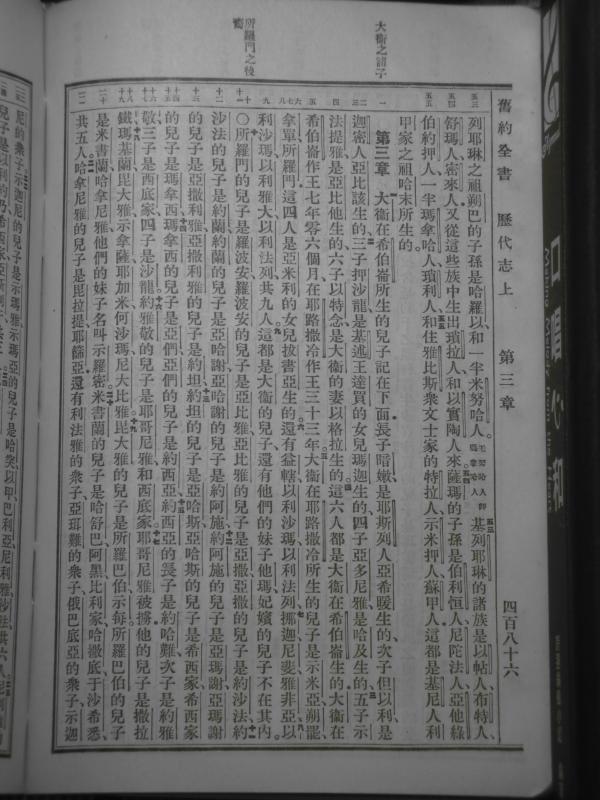 舊約全書 歷代志上 第三章 四百八十六
大衛之諸子
所羅門之後裔
列耶琳之祖朔巴的子孫是哈羅以和一半米努哈人 基列耶琳的諸族是以帖人布特人
舒瑪人密來人又從這些族中生出瑣拉人和以實陶人來薩瑪的子孫是伯利恒人尼陀法人亞他綠
伯約押人一半瑪拿哈人瑣利人和住雅比斯衆文士家的特拉人示米押人蘇甲人這都是基尼人利
甲家之祖哈末所生的
第三章 大衛在希伯崙所生的兒子記在下面長子暗嫩是耶斯列人亞希暖生的次子但以利是
迦密人亞比該生的三子押沙龍是基述王達買的女兒瑪迦生的四子亞多尼雅是哈及生的五子示
法提雅是亞比他生的六子以特念是大衛的妻以格拉生的這六人都是大衛在希伯崙生的大衛在
希伯崙作王七年零六個月在耶路撒冷作王三十三年大衛在耶路撒冷所生的兒子是示米亞朔罷
拿單所羅門這四人是亞米利的女兒拔書亞生的還有益轄以利沙瑪以利法列挪迦尼斐雅非亞以
利沙瑪以利雅大以利法列共九人這都是大衛的兒子還有他們的妹子他瑪妃嬪的兒子不在其內
〇所羅門的兒子是羅波安羅波安的兒子是亞比雅亞比雅的兒子是亞撒亞撒的兒子是約沙法約
沙法的兒子是約蘭約蘭的兒子是亞哈謝亞哈謝的兒子是約阿施約阿施的兒子是亞瑪謝亞瑪謝
的兒子是亞撒利雅亞撒利雅的兒子是約坦約坦的兒子是亞哈斯亞哈斯的兒子是希西家希西家
的兒子是瑪拿西瑪拿西的兒子是亞們亞們的兒子是約西亞約西亞的長子是約哈難次子是約雅
敬三子是西底家四子是沙龍約雅敬的兒子是耶哥尼雅和西底家耶哥尼雅被擄他的兒子是撒拉
鐵瑪基蘭毘大雅示拿薩耶加米何沙瑪尼大比雅毘大雅的兒子是所羅巴伯示每所羅巴伯的兒子
是米書蘭哈拿尼雅他們的妹子名叫示羅密米書蘭的兒子是哈舒巴阿黑比利家哈撒底于沙希悉
共五人哈拿尼雅的兒子是毘拉提耶篩亞還有利法雅的衆子亞珥難的衆子俄巴底亞的衆子示迦
尼的衆子示迦尼的兒子是示瑪雅示瑪亞的兒子是哈突以甲巴利亞尼利雅沙法共六人
口唱心和